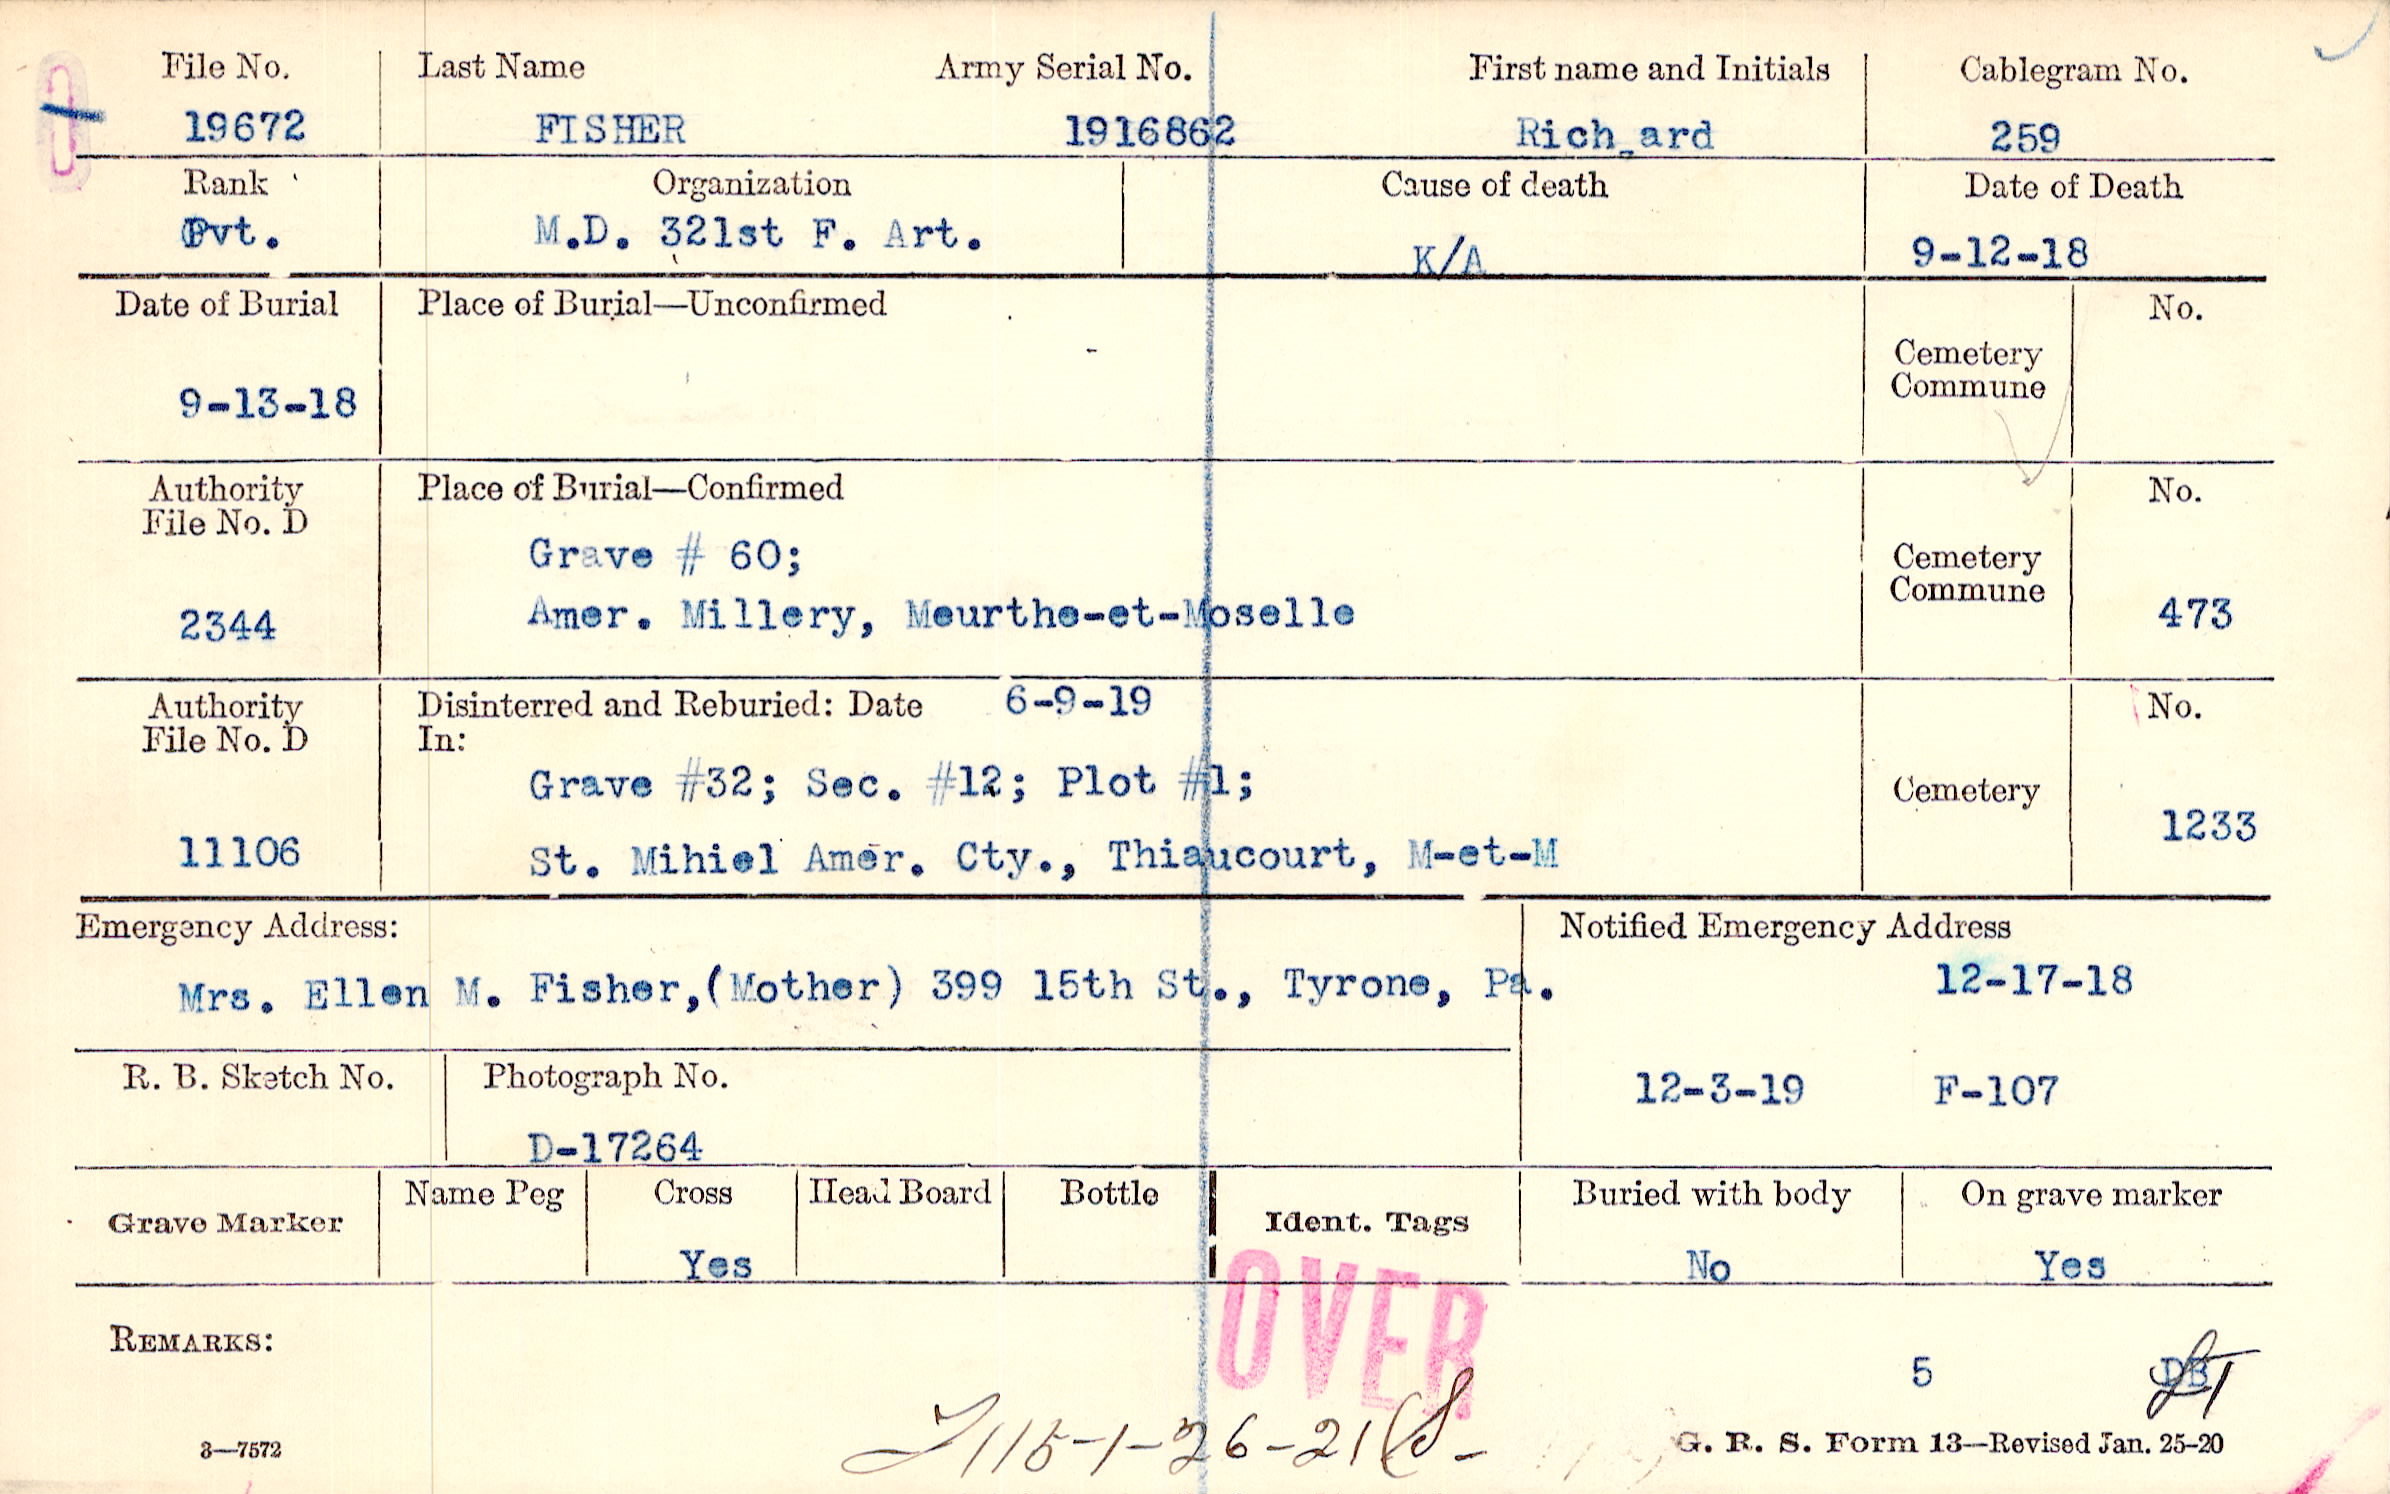 File No. Last Name Army Serial No. First name and Initials Cablegram No.
19672 FISHER 1916862 Rich ard 259
Rank Organization Cause of death Date of Death
Pvt. M.D. 321st F. Art. K/A 9-12-18
Date of Burial Place of Burial—Unconfirmed No.
Cemetery
Commune
9-13-18
Authority Place of Burial—Confirmed No.
File No. D
Grave # 60; Cemetery
Commune
2344 Amer. Millery, Meurthe-et-Moselle 473
Authority Disinterred and Reburied: Date 6-9-19 No.
File No. D In:
Grave #32; Sec. #12; Plot #1; Cemetery
11106 St. Mihiel Amer. Cty., Thiaucourt, M-et-M 1233
Emergency Address: Notified Emergency Address
Mrs. Ellen M. Fisher,(Mother) 399 15th St., Tyrone, Pa. 12-17-18
R. B. Sketch No. Photograph No. 12-3-19 F-107
D-17264
Grave Marker Name Peg Cross Head Board Bottle Ident. Tags Buried with body On grave marker
Yes No Yes
OVER
REMARKS:
5 DB
115-1-26-21
3—7572 G. R. S. Form 13—Revised Jan. 25-20